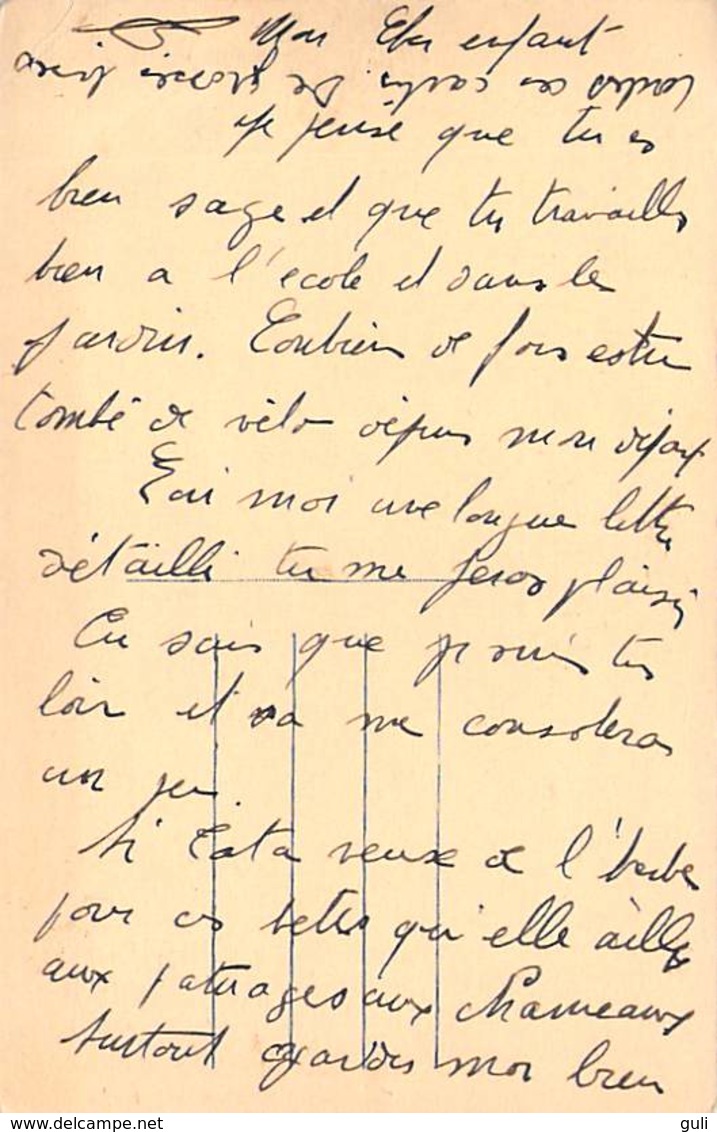 Mon Cher enfant
toutes ces cartes de
Je pense que tu es
bien sage et que tu travailles
bien a l'ecole et dans les
jardin. Combien de fois estu
tombé de vélo dépuis mon départ
Fai moi une longue lettre
détailli tu me feras plaisir
Tu sais que je suis tres
loin et ça me consoleras
un peu
Si Tata veux de l'herbe
pour ces betes qu'elle aille
aux paturages aux Chameaux
surtout gardes moi bien
guli